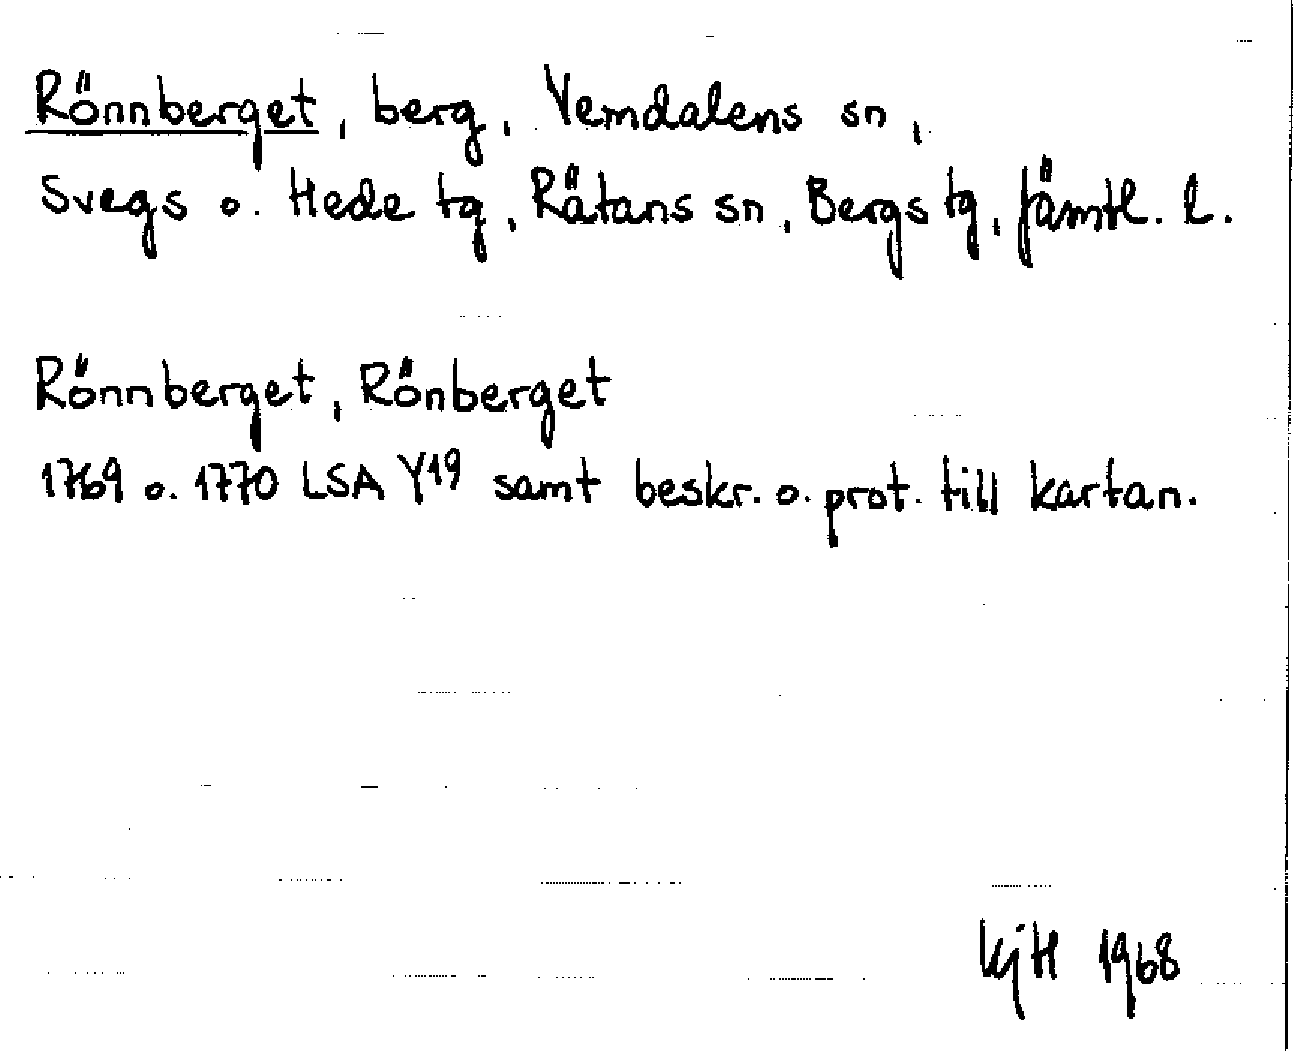 Rönnberget, berg, Vemdalens sn,
Svegs o. Hede tg, Rätans sn, Bergs tg, Jämtl. l.
Rönnberget, Rönberget
1769 o. 1770 LSA Y19 samt beskr. o. prot. till kartan.
KjH 1968